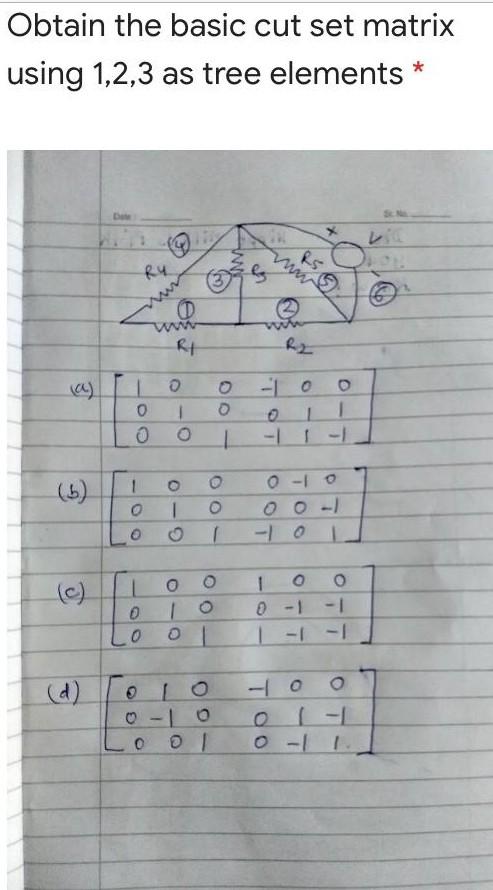 Obtain the basic cut set matrix
using 1,2,3 as tree elements *
Date
Sr. No.
4
R4
3
R3
R5
5
+
V
-
6
1
2
R1
R2
(a) 1 0 0 -1 0 0
0 1 0 0 1 1
0 0 1 -1 1 -1
(b) 1 0 0 0 -1 0
0 1 0 0 0 -1
0 0 1 -1 0 1
(c) 1 0 0 1 0 0
0 1 0 0 -1 -1
0 0 1 1 -1 -1
(d) 0 1 0 -1 0 0
0 -1 0 0 1 -1
0 0 1 0 -1 1.